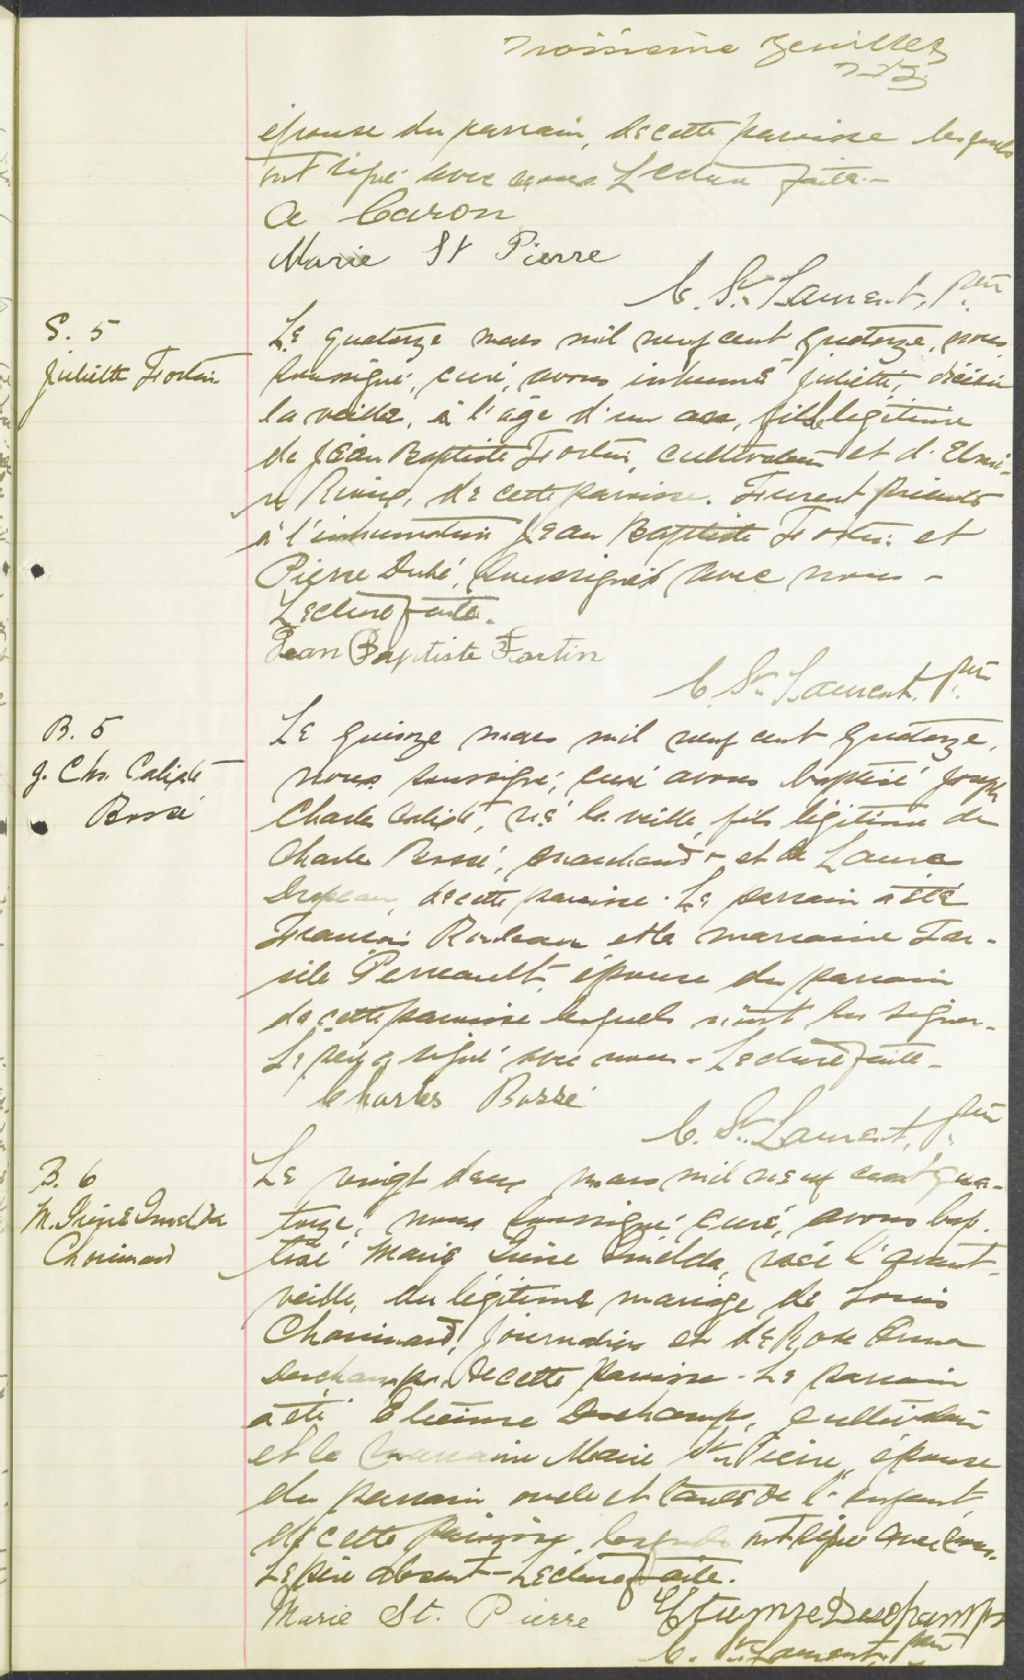 Troisième feuillet
épouse du parrain, de cette paroisse lesquels
ont signé avec nous. Lecture faite.-
A Caron
Marie St Pierre
C. St. Laurent, ptre
S. 5
Juliette Fortin
Le quatorze mars mil neuf cent quatorze, nous
soussigné, curé, avons inhumé Juliette, décédée
la veille, à l'âge d'un an, fille légitime
de Jean Baptiste Fortin, cultivateur et d'
de cette paroisse. Furent présents
à l'inhumation Jean Baptiste Fortin et
Pierre Dubé, soussignés avec nous -
Lecture faite.
Jean Baptiste Fortin
C. St. Laurent, ptre
B. 5
J. Chs. Calixte
Bossé
Le quinze mars mil neuf cent quatorze,
nous soussigné, curé avons baptisé Joseph
Charles Calixte, né la veille, fils légitime de
Charles Bossé, marchand et de Laura
Drapeau, de cette paroisse. Le parrain a été
François Rouleau et la marraine Tar-
sile Perreault, épouse du parrain
de cette paroisse lesquels n'ont su signer.
Le père a signé avec nous - Lecture faite -
Charles Bossé
C. St. Laurent, ptre
B. 6
M. Irène Imelda
Chouinard
Le vingt deux mars mil neuf cent qua-
torze, nous soussigné curé, avons bap-
tisé Marie Irène Imelda, née l'avant-
veille, du légitime mariage de Louis
Chouinard, journalier et de Rose Anna
Deschamps, de cette paroisse - Le parrain
a été Etienne Deschamps, cultivateur
et la marraine Marie St. Pierre, épouse
du parrain oncle et tante de l'enfant,
de cette paroisse, lesquels ont signé avec nous.
Le père absent - Lecture faite.
Marie St. Pierre Etienne Deschamps
C. St. Laurent, ptre